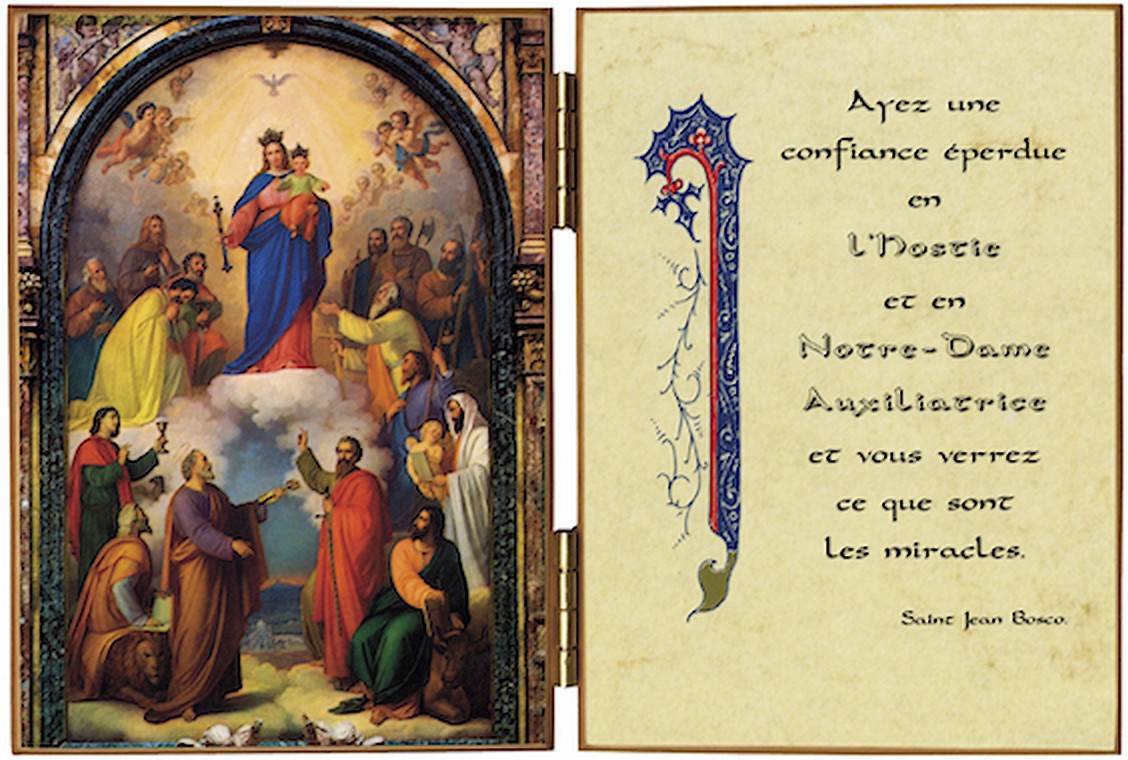 Ayez une
confiance éperdue
en
l'Hostie
et en
Notre-Dame
Auxiliatrice
et vous verrez
ce que sont
les miracles.
Saint Jean Bosco.